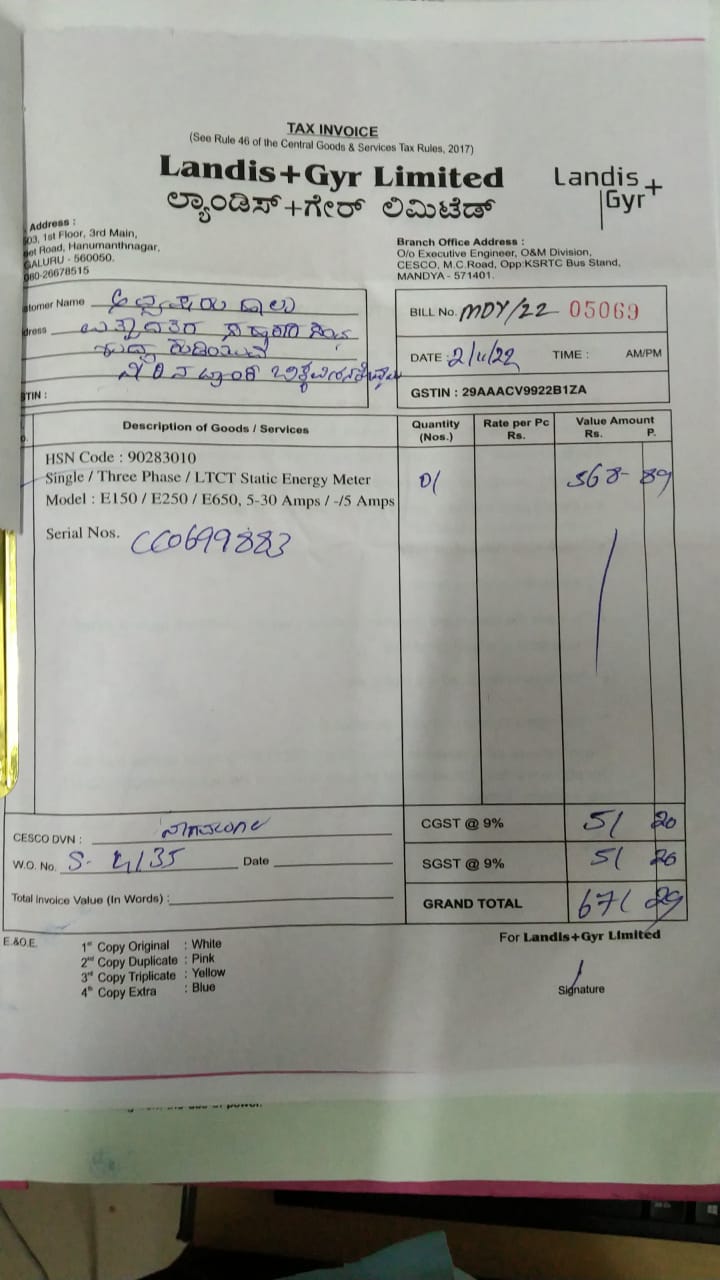 TAX INVOICE
(See Rule 46 of the Central Goods & Services Tax Rules, 2017)
Landis+Gyr Limited
ಲ್ಯಾಂಡಿಸ್+ಗೇರ್ ಲಿಮಿಟೆಡ್
Landis+
Gyr
Address :
03, 1st Floor, 3rd Main,
et Road, Hanumanthnagar,
GALURU - 560050.
080-26678515
Branch Office Address :
O/o Executive Engineer, O&M Division,
CESCO, M.C.Road, Opp:KSRTC Bus Stand,
MANDYA - 571401.
tomer Name
dress
TIN :
BILL No. MDY/22 05069
DATE : 2/11/22 TIME : AM/PM
GSTIN : 29AAACV9922B1ZA
Description of Goods / Services Quantity (Nos.) Rate per Pc Rs. Value Amount Rs. P.
HSN Code : 90283010
Single / Three Phase / LTCT Static Energy Meter 01 568- 89
Model : E150 / E250 / E650, 5-30 Amps / -/5 Amps
Serial Nos. CC0699883
CESCO DVN :
CGST @ 9% 51 20
W.O. No. S- Date
SGST @ 9% 51 20
Total Invoice Value (In Words) :
GRAND TOTAL 671 29
E.&O.E.
For Landis+Gyr Limited
1st Copy Original : White
2nd Copy Duplicate : Pink
3rd Copy Triplicate : Yellow
4th Copy Extra : Blue
Signature